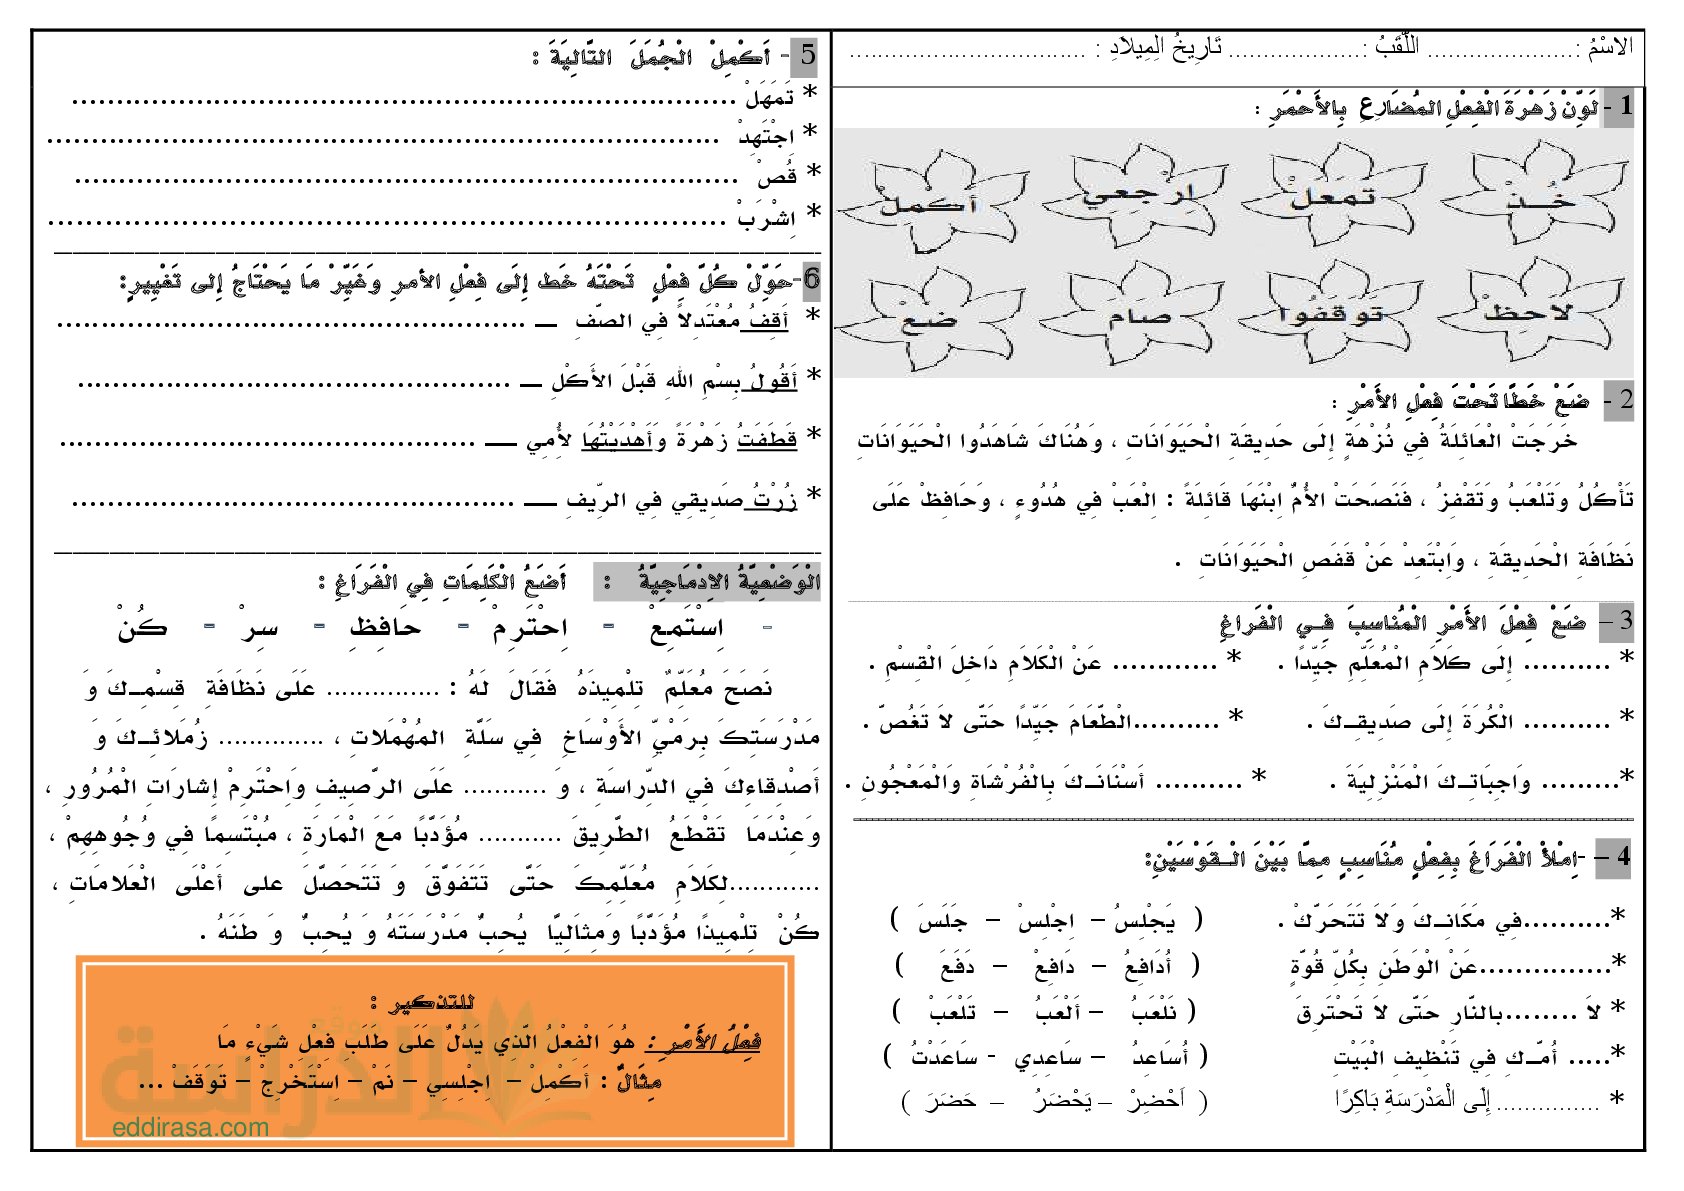 الاسْمُ :..................... اللَّقَبُ :................... تَارِيخُ المِيلاَدِ : .................................
1 -لَوِّنْ زَهْرَةَ الْفِعْلِ المُضَارِعِ بِالأَحْمَرِ :
خُـذْ تمَعَّلْ اِرْجعِي أكملْ
لاَحِظْ تَوَقفُوا صَامَ ضَعْ
2 - ضَعْ خَطًّا تَحْتَ فِعْلِ الأَمْرِ :
خَرَجَتْ الْعَائِلَةُ فِي نُزْهَةٍ إِلَى حَدِيقَةِ الْحَيَوَانَاتِ ، وَهُنَاكَ شَاهَدُوا الْحَيَوَانَاتِ
تَأْكُلُ وَتَلْعَبُ وَتَقْفِزُ ، فَنَصَحَتْ الأُمُّ اِبْنَهَا قَائِلَةً : اِلْعَبْ فِي هُدُوءٍ ، وَحَافِظْ عَلَى
نَظَافَةِ الْحَدِيقَةِ ، وَاِبْتَعِدْ عَنْ قَفَصِ الْحَيَوَانَاتِ .
3 – ضَعْ فِعْلَ الأَمْرِ الْمُنَاسِبَ فِـي الْفَرَاغِ
* .......... إِلَى كَلاَمِ الْمُعَلِّمِ جَيِّدًا . * ............ عَنْ الْكَلاَمِ دَاخِلَ الْقِسْمِ .
* .......... الْكُرَةَ إِلَى صَدِيقِـكَ . * ..........الْطَّعَامَ جَيِّدًا حَتَّى لاَ تَغُصَّ .
*......... وَاجِبَاتِـكَ الْمَنْزِلِيَةَ . * .......... أَسْنَانَـكَ بِالْفُرْشَاةِ وَالْمَعْجُونِ .
4 – -اِمْلأْ الْفَرَاغَ بِفِعْلٍ مُنَاسِبٍ مِمَّا بَيْنَ الْـقَوْسَيْنِ:
*..........فِي مَكَانِـكَ وَلاَ تَتَحَرَّكْ . ( يَجْلِسُ – اِجْلِسْ – جَلَسَ )
*...............عَنْ الْوَطَنِ بِكُلِّ قُوَّةٍ ( أُدَافِعُ – دَافِعْ – دَفَعَ )
* لاَ ........بالنَّارِ حَتَّى لاَ تَحْتَرِقَ ( نَلْعَبُ – ألْعَبُ – تَلْعَبْ )
*..... أُمّـكِ فِي تَنْظِيفِ الْبَيْتِ ( أُسَاعِدُ – سَاعِدِي - سَاعَدْتُ )
* ............... إِلَى الْمَدْرَسَةِ بَاكِرًا ( اَحْضِرْ – يَحْضَرُ – حَضَرَ )
5 - أَكْمِلْ الْجُمَلَ التَّالِيَةَ :
* تَمَهَلْ ........................................................................
* اِجْتَهِدْ ........................................................................
* قُصْ ........................................................................
* اِشْرَبْ ........................................................................
6-حَوِّلْ كُلَّ فِعْلٍ تَحْتَهُ خَط إِلَى فِعْلِ الأمرِ وَغَيِّرْ مَا يَحْتَاجُ إِلى تَغْيِيرٍ:
* أَقِفُ مُعْتَدِلاً فِي الصّفِ ـــ ..................................................
* أَقُولُ بِسْمِ اللهِ قَبْلَ الأَكْلِ ـــ ..............................................
* قَطَفَتُ زَهْرَةً وَأَهْدَيْتُهَا لأُمِي ـــ ............................................
* زُرْتُ صَدِيقِي فِي الرِّيفِ ـــ ................................................
الْوَضْعِيَّةُ الاِدْمَاجِيَّةُ : أَضَعُ الْكَلِمَاتِ فِي الْفَرَاغِ :
- اِسْتَمِعْ - اِحْتَرِمْ - حَافِظِ - سِرْ - كُنْ
نَصَحَ مُعَلِّمٌ تِلْمِيذَهُ فَقَالَ لَهُ : ............... عَلَى نَظَافَةِ قِسْمِـكَ وَ
مَدْرَسَتِكَ بِرَمْيِّ الأَوْسَاخِ فِي سَلَّةِ المُهْمَلاَتِ ، .............. زُمَلائِـكَ وَ
أَصْدِقاءِكَ فِي الدِّراسَةِ ، وَ ........... عَلَى الرَّصِيفِ وَاِحْتَرِمْ إِشارَاتِ الْمُرُورِ ،
وَعِنْدَمَا تَقْطَعُ الطَّرِيقَ ........... مُؤَدَّبًا مَعَ الْمَارَةِ ، مُبْتَسِمًا فِي وُجُوهِهِمْ ،
............لِكَلاَمِ مُعَلِّمِكَ حَتَّى تَتَفَوَّقَ وَ تَتَحَصَّلَ على أَعْلَى الْعَلامَاتِ ،
كُنْ تِلْمِيذًا مُؤَدَّبًا وَمِثَالِيًّا يُحِبُّ مَدْرَسَتَهُ وَ يُحِبُّ وَ طَنَهُ .
للتذكير :
فِعْلُ الأَمْرِ : هُوَ الْفِعْلُ الَّذِي يَدُلُّ عَلَى طَلَبِ فِعْلِ شَيْءٍ مَا
مِثَالٌ : أَكْمِلْ – اِجْلِسِي – نَمْ – اِسْتَخْرِجْ – تَوَقَفْ ...
موقع الدراسة
eddirasa.com